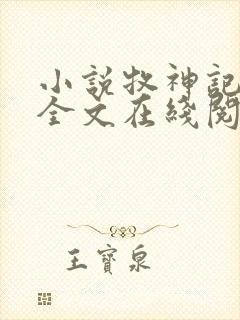 小說牧神記
全文在綫閱
王寶泉